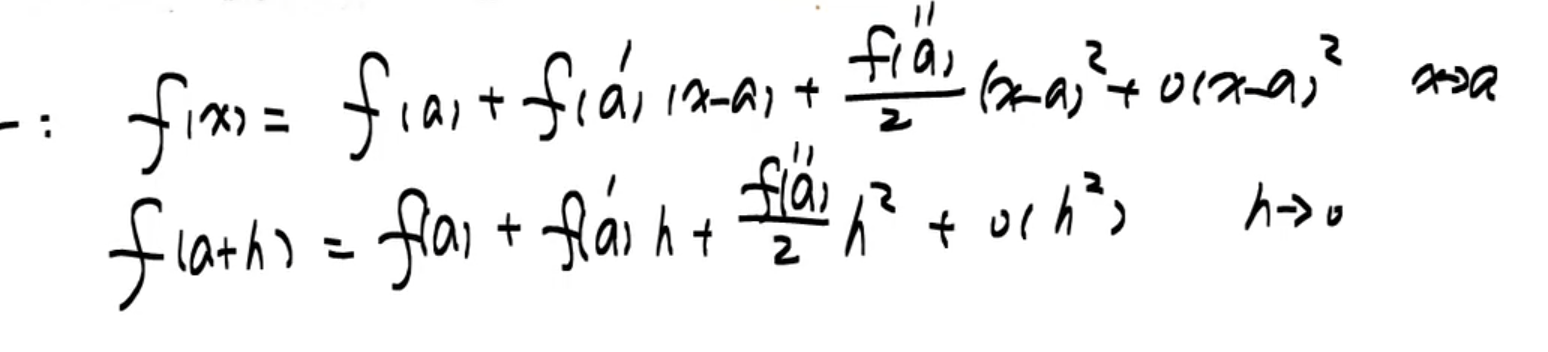 一: f(x) = f(a) + f'(a)(x-a) + f''(a)/2 (x-a)² + o(x-a)² x→a
f(a+h) = f(a) + f'(a)h + f''(a)/2 h² + o(h²) h→0